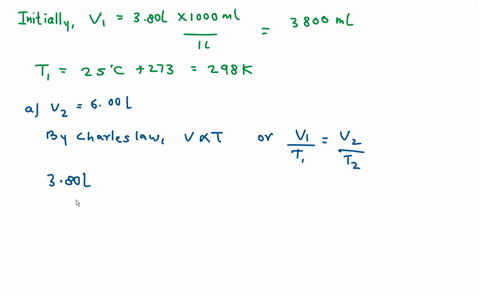 Initially, V₁ = 3.80L × 1000 mL / 1L = 3800 mL
T₁ = 25°C + 273 = 298K
a) V₂ = 6.00L
By Charles law, V ∝ T or V₁/T₁ = V₂/T₂
3.80L